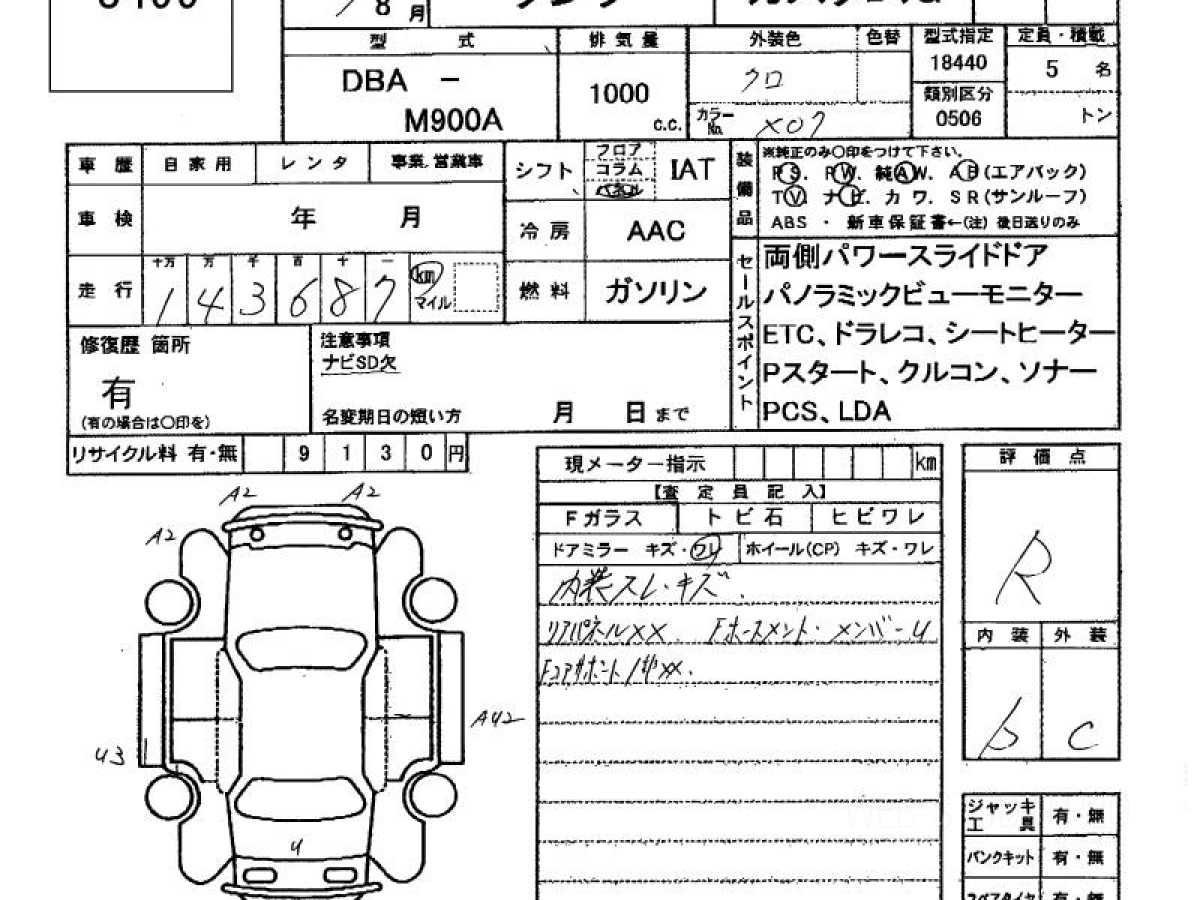 8月
型 式
排 気 量
外装色
色替
型式指定
定員・積載
DBA －
M900A
1000
c.c.
クロ
カラー
No.
X07
18440
類別区分
0506
5 名
トン
車 歴
自 家 用
レ ン タ
事業. 営業車
シフト
フロア
コラム
パネル
IAT
装備品
※純正のみ〇印をつけて下さい。
PS. PW. 純AW. AB(エアバック)
TV. ナビ. カ ワ. SR(サンルーフ)
ABS ・ 新車保証書←(注) 後日送りのみ
車 検
年 月
冷 房
AAC
走 行
十万 万 千 百 十 一
1 4 3 6 8 7
km
マイル
燃 料
ガソリン
セールスポイント
両側パワースライドドア
パノラミックビューモニター
ETC、ドラレコ、シートヒーター
Pスタート、クルコン、ソナー
PCS、LDA
修復歴 箇所
有
(有の場合は〇印を)
注意事項
ナビSD欠
名変期日の短い方 月 日 まで
リサイクル料 有・無 9 1 3 0 円
現メーター指示 km
【査 定 員 記 入】
Fガラス トビ石 ヒビワレ
ドアミラー キズ・ワレ ホイール(CP) キズ・ワレ
内装スレ・キズ.
リアパネルXX. Fホースメント・メンバーU
FコアサポートXX.
評 価 点
R
内 装 外 装
D C
A2 A2
A2
U3
A42
U
ジャッキ
工 具
有・無
パンクキット 有・無
スペアタイヤ 有・無